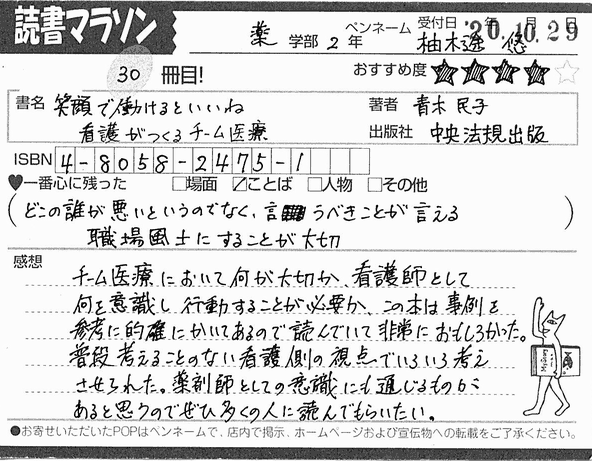 読書マラソン
薬 学部 2 年 ペンネーム 柚木遥 悠
受付日 '20.10.29
30 冊目!
おすすめ度 ★★★★☆
書名 笑顔で働けるといいね
看護がつくるチーム医療
著者 青木 民子
出版社 中央法規出版
ISBN 4-8058-2475-1
♥一番心に残った □場面 ☑ことば □人物 □その他
(どこの誰が悪いというのでなく、言うべきことが言える
職場風土にすることが大切)
感想
チーム医療において何が大切か、看護師として
何を意識し行動することが必要か、この本は事例を
参考に的確にかいてあるので読んでいて非常におもしろかった。
普段考えることのない看護側の視点でいろいろ考え
させられた。薬剤師としての意識にも通じるものが
あると思うのでぜひ多くの人に読んでもらいたい。
●お寄せいただいたPOPはペンネームで、店内で掲示、ホームページおよび宣伝物への転載をご了承ください。